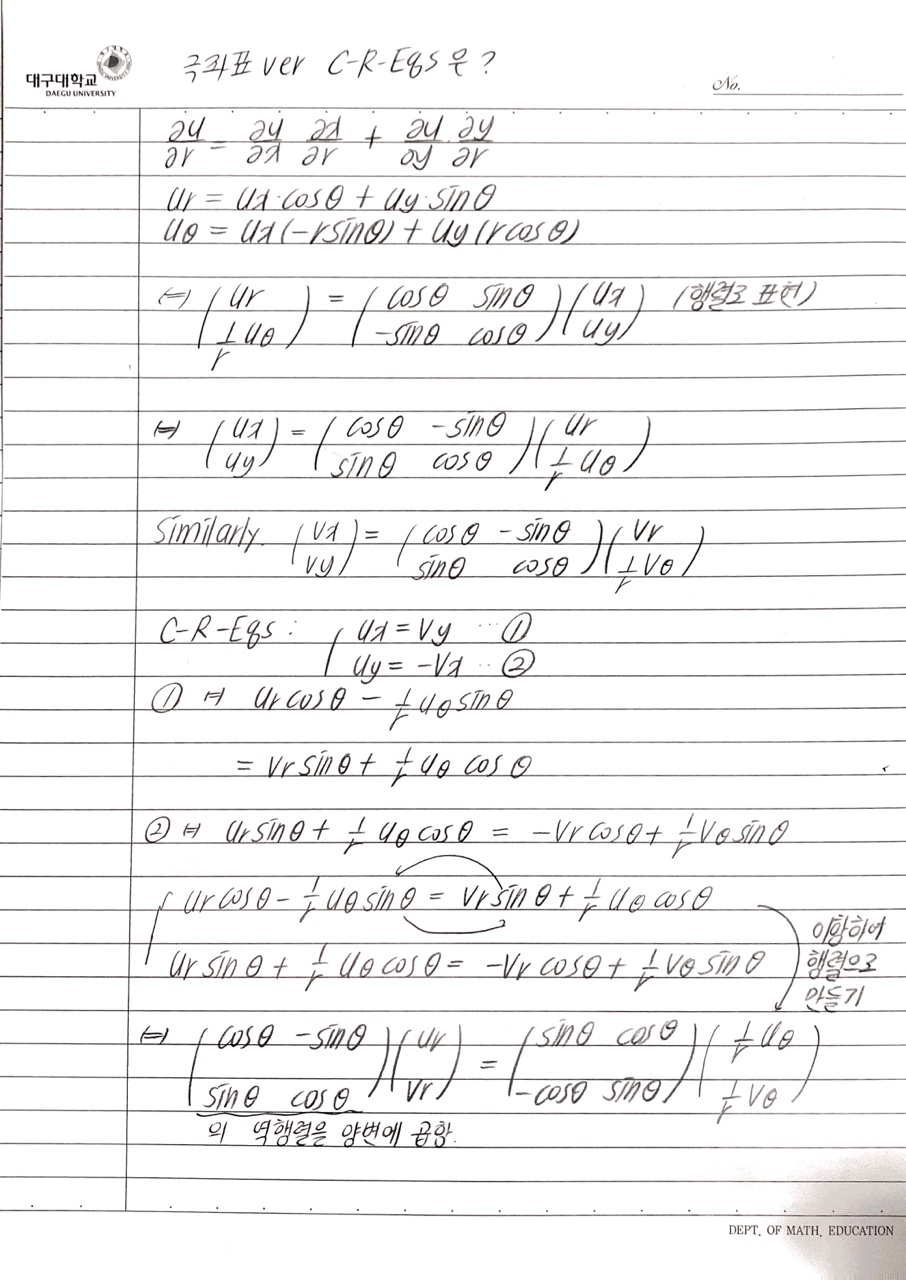 극좌표 ver C-R-Eqs은?
대구대학교
DAEGU UNIVERSITY
No.
∂u/∂r = ∂u/∂x ∂x/∂r + ∂u/∂y · ∂y/∂r
Ur = Ux·cosθ + Uy·sinθ
Uθ = Ux(-rsinθ) + Uy(rcosθ)
⇔ (Ur, 1/r Uθ) = (cosθ sinθ, -sinθ cosθ)(Ux, Uy) (행렬로 표현)
⇔ (Ux, Uy) = (cosθ -sinθ, sinθ cosθ)(Ur, 1/r Uθ)
Similarly. (Vx, Vy) = (cosθ -sinθ, sinθ cosθ)(Vr, 1/r Vθ)
C-R-Eqs : { Ux = Vy ··· ①
Uy = -Vx ·· ②
① ⇔ Ur cosθ - 1/r Uθ sinθ
= Vr sinθ + 1/r Uθ cosθ
② ⇔ Ur sinθ + 1/r Uθ cosθ = -Vr cosθ + 1/r Vθ sinθ
{ Ur cosθ - 1/r Uθ sinθ = Vr sinθ + 1/r Uθ cosθ
Ur sinθ + 1/r Uθ cosθ = -Vr cosθ + 1/r Vθ sinθ
이항하여
행렬으로
만들기
⇔ (cosθ -sinθ, sinθ cosθ)(Ur, Vr) = (sinθ cosθ, -cosθ sinθ)(1/r Uθ, 1/r Vθ)
의 역행렬을 양변에 곱함.
DEPT. OF MATH. EDUCATION